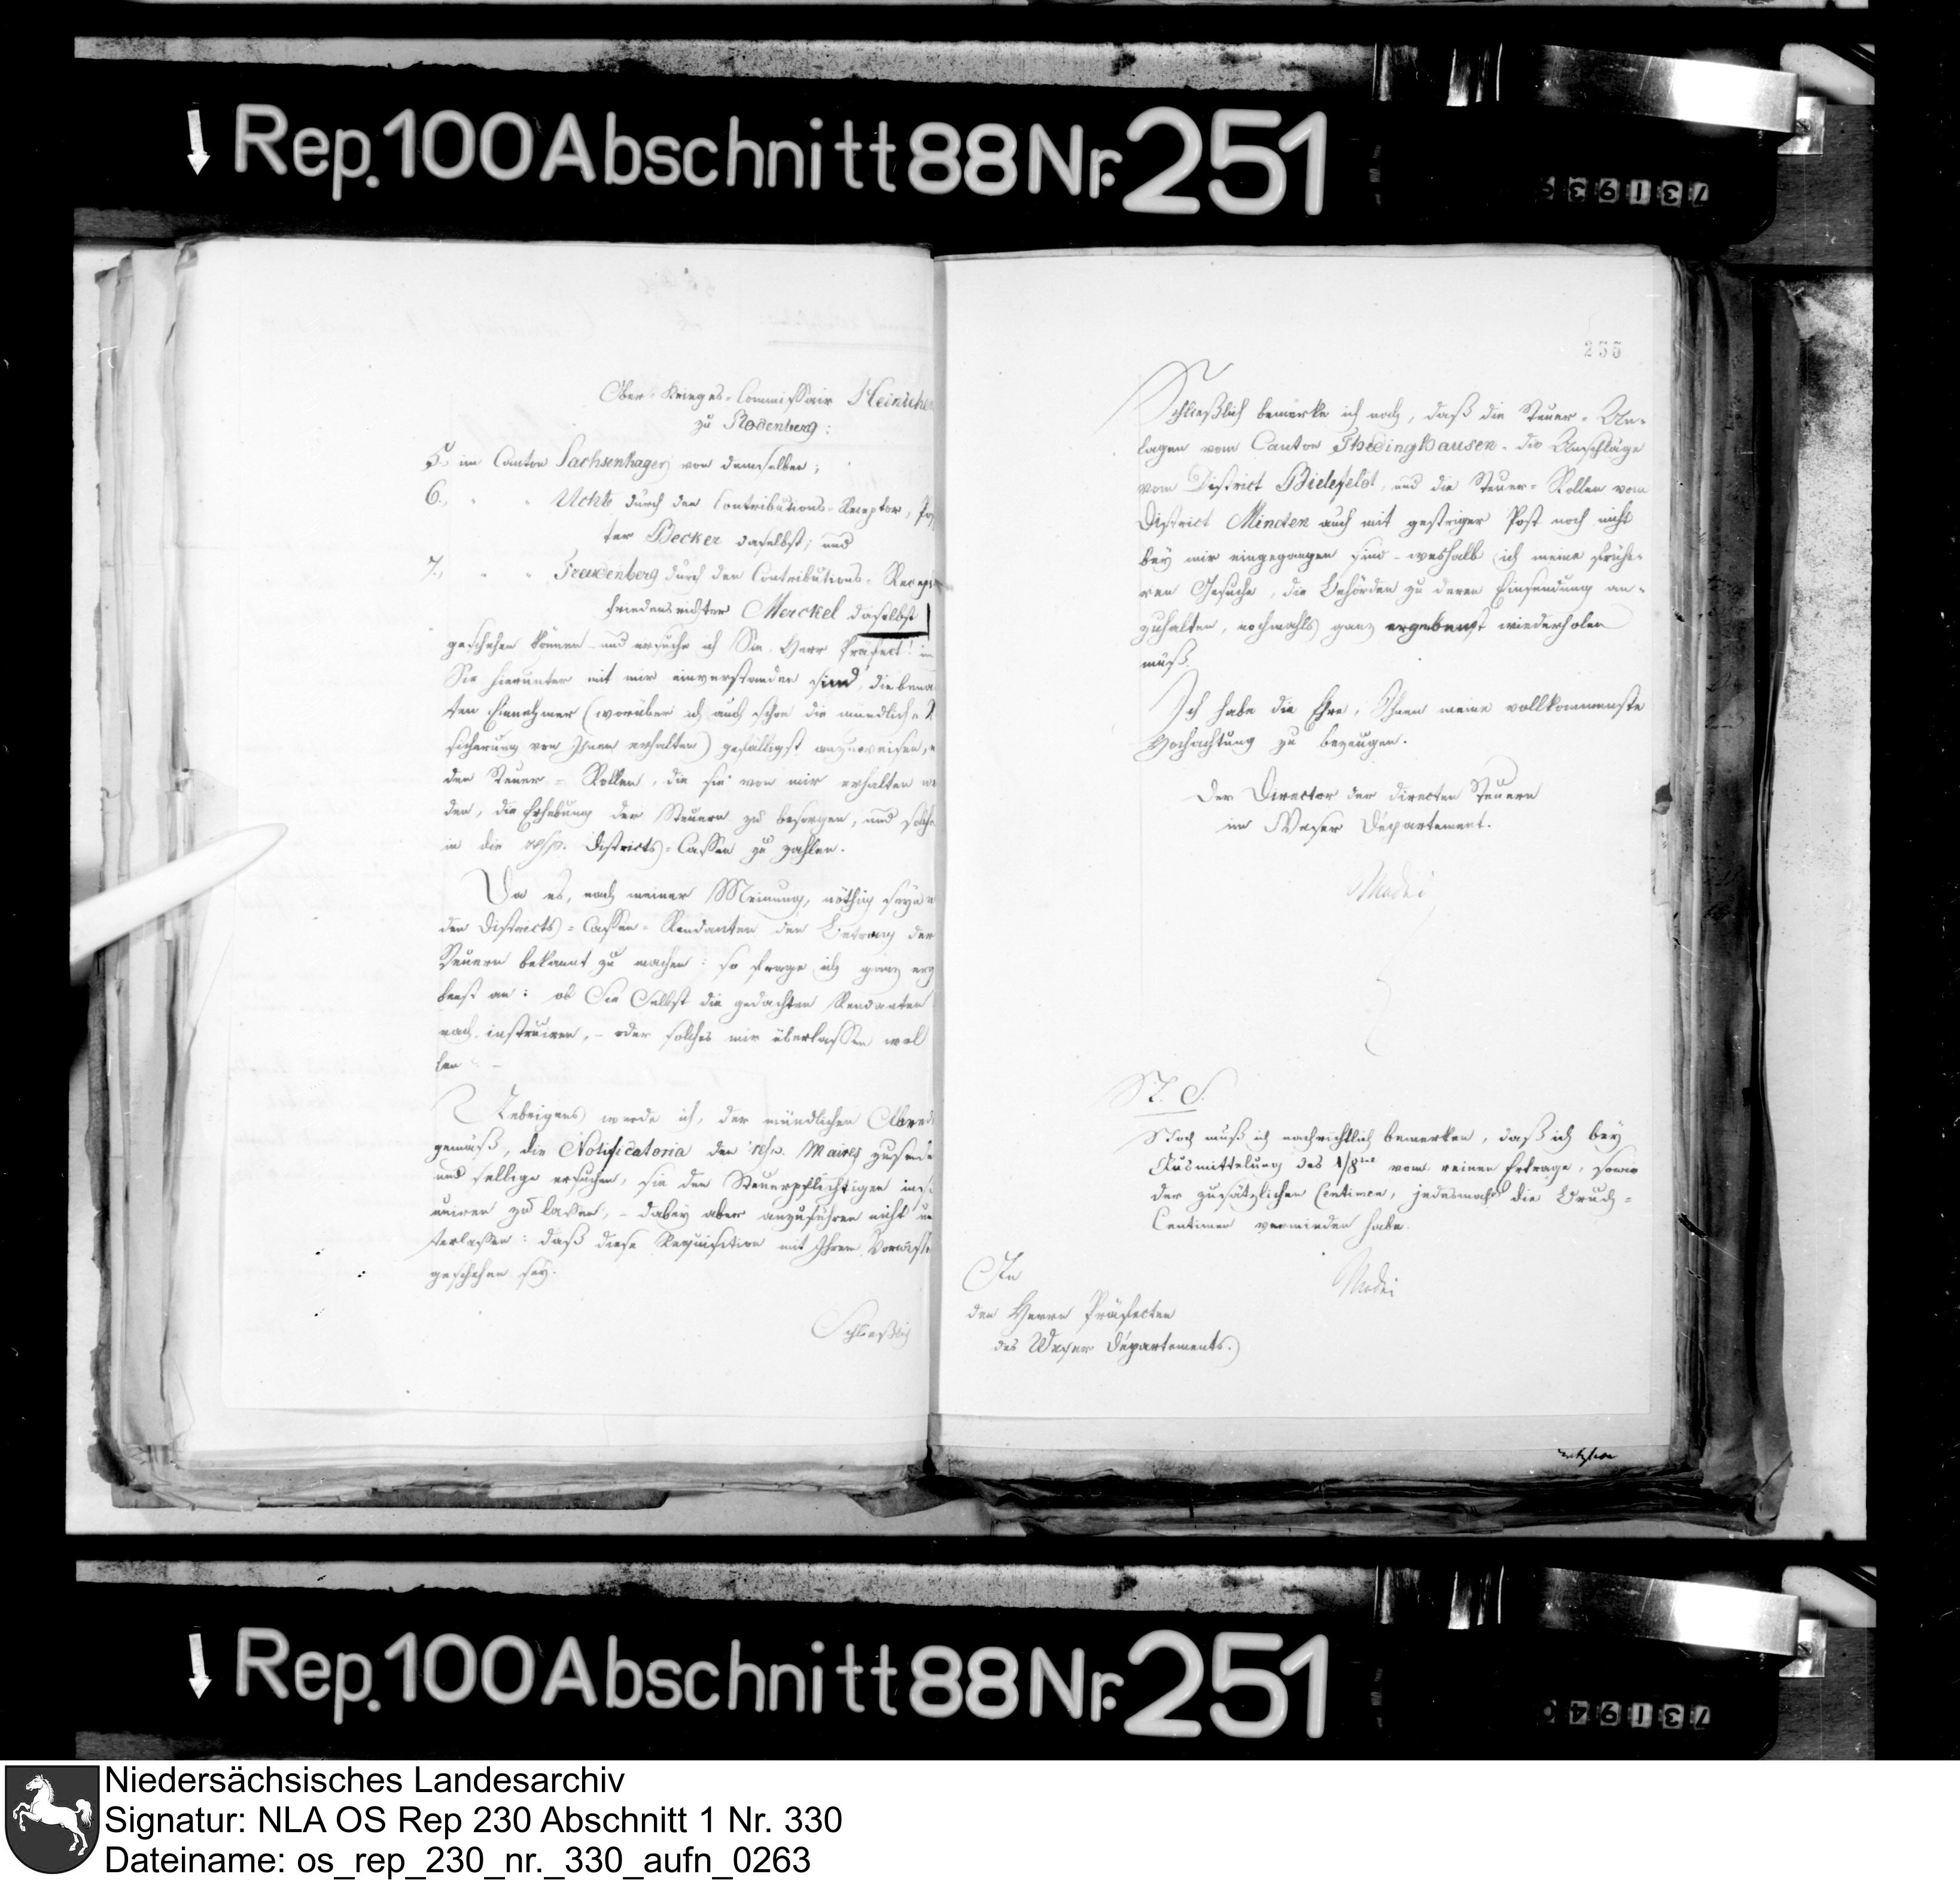 Rep. 100 Abschnitt 88 Nr. 251
731939
Ober-Krieges-Commissair Heiniche
zu Rodenberg:
5., im Canton Sachsenhagen von demselben;
6., " " Uchte durch den Contributions-Receptor, Pos
ter Becker daselbst; und
7., " " Freudenberg durch den Contributions-Recept
Friedensrichter Merckel daselbst
geschehen können – und ersuche ich Sie, Herr Präfect! in
Sie hierunter mit mir einverstanden sind, die bena
ten Einnehmer (worüber ich auch schon die mündliche
sicherung von Ihnen erhalten) gefälligst anzuweisen,
den Steuer-Rollen, die sie von mir erhalten we
den, die Erhebung der Steuern zu besorgen, und solche
in die resp. Districts-Cassen zu zahlen.
Da es, nach meiner Meinung, nöthig seyn
den Districts-Cassen-Rendanten den Betrag der
Steuern bekannt zu machen: so frage ich ganz erg
benst an: ob Sie Selbst die gedachten Rendanten
nach instruiren, – oder solches mir überlassen wol
len –
Uebrigens werde ich, der mündlichen Abred
gemäß, die Notificatoria den resp. Maires zusende
und selbige ersuchen, sie den Steuerpflichtigen ins
nuiren zu lassen, – dabey aber anzuführen nicht un
terlassen: daß diese Requisition mit Ihrem Vorwisse
geschehen sey.
Schließlich
255
Schließlich bemerke ich noch, daß die Steuer-An-
lagen vom Canton Thedinghausen – die Anschläge
vom District Bielefeld, und die Steuer-Rollen vom
District Minden auch mit gestriger Post noch nicht
bey mir eingegangen sind – weshalb ich meine frühe-
ren Gesuche, die Behörden zu deren Einsendung an-
zuhalten, nochmahls ganz ergebenst wiederholen
muß.
Ich habe die Ehre, Ihnen meine vollkommenste
Hochachtung zu bezeugen.
Der Director der directen Steuern
im Weser Département.
Madei
N. S.
Noch muß ich nachrichtlich bemerken, daß ich bey
Ausmittelung des 1/8tel vom reinen Ertrage, sowie
der zusätzlichen Centimen, jedesmahl die Bruch-
Centimen vermieden habe.
Madei
An
den Herrn Präfecten
des Weser Départements.
Rep. 100 Abschnitt 88 Nr. 251
731940
Niedersächsisches Landesarchiv
Signatur: NLA OS Rep 230 Abschnitt 1 Nr. 330
Dateiname: os_rep_230_nr._330_aufn_0263